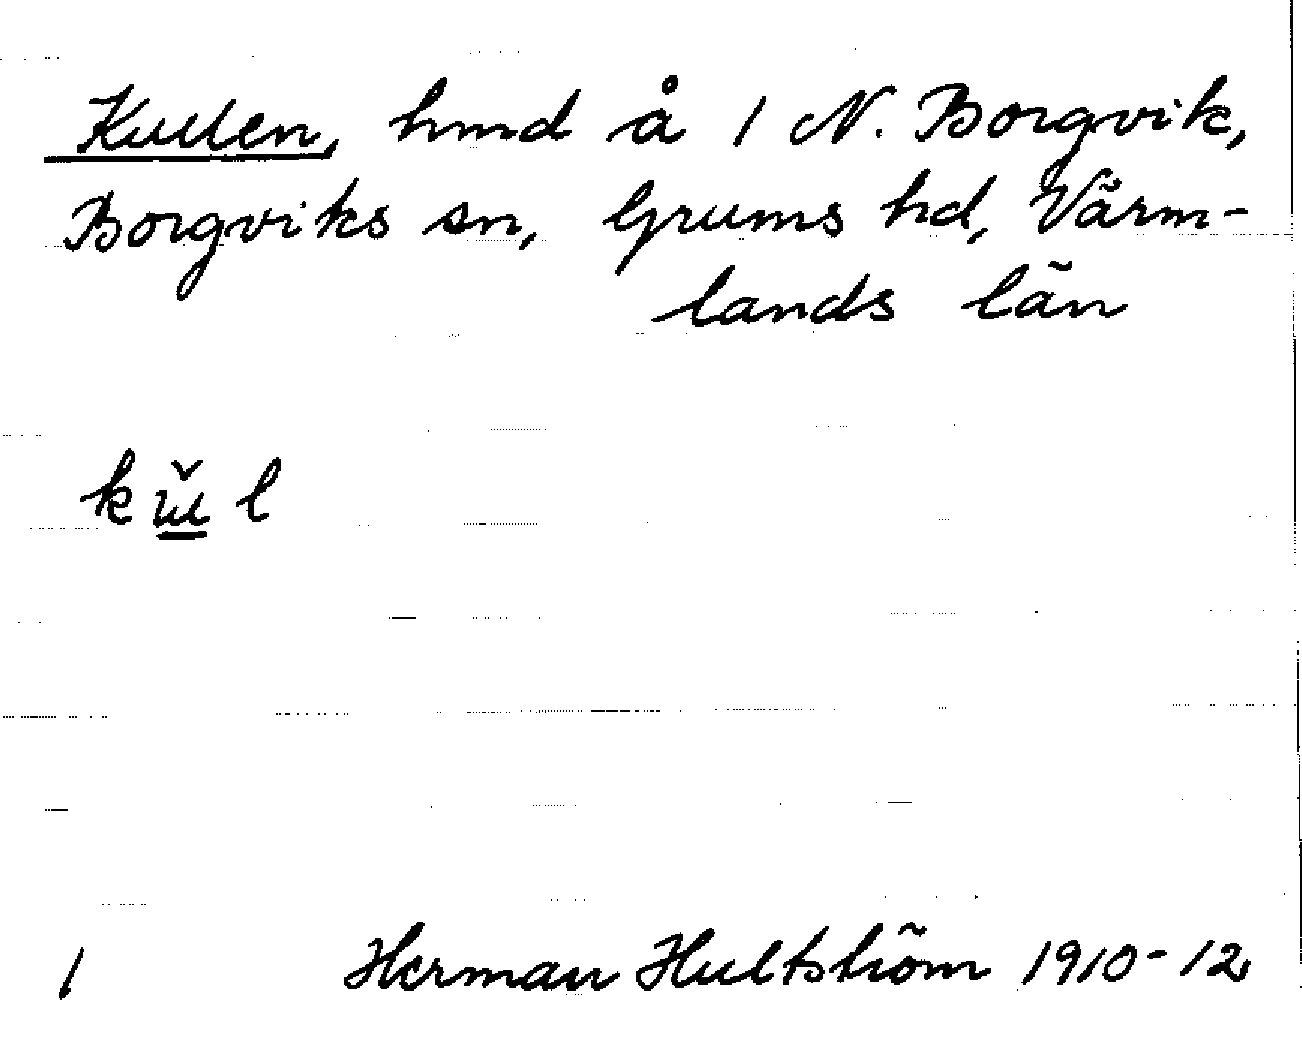 Kullen, hmd å 1 N. Borgvik,
Borgviks sn, Grums hd, Värm-
lands län
l
1 Herman Hultström 1910-12